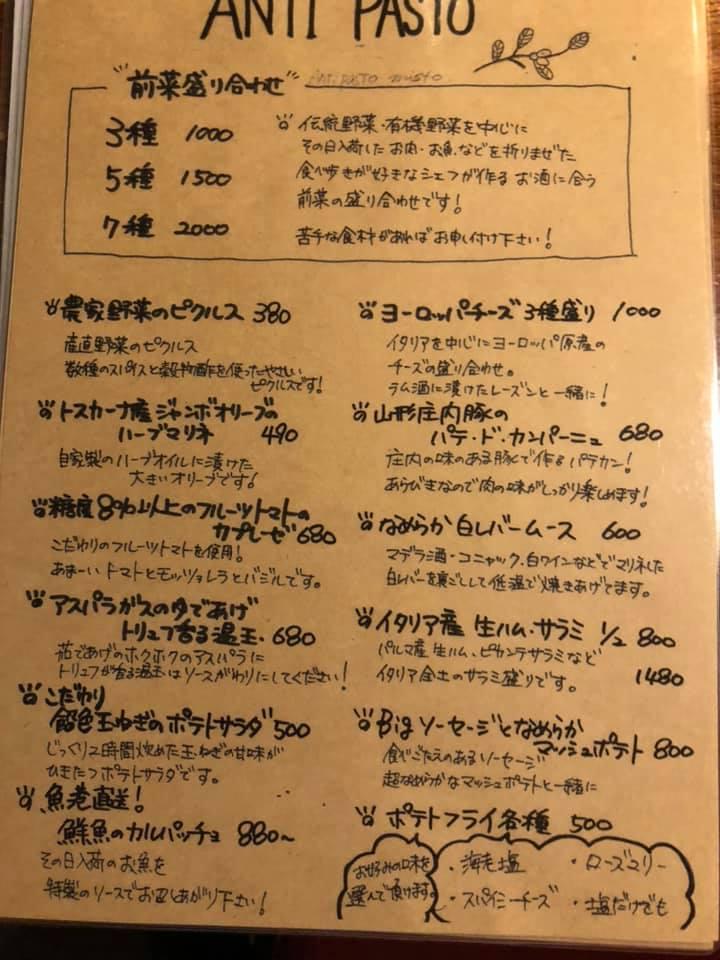 ANTI PASTO
"前菜盛り合わせ"
3種 1000
5種 1500
7種 2000
伝統野菜・有機野菜を中心に
その日入荷したお肉・お魚などを折りまぜた
食べ歩きが好きなシェフが作るお酒に合う
前菜の盛り合わせです!
苦手な食材があればお申し付け下さい!
農家野菜のピクルス 380
産直野菜のピクルス
数種のスパイスと穀物酢を使ったやさしい
ピクルスです!
トスカーナ産ジャンボオリーブの
ハーブマリネ 490
自家製のハーブオイルに漬けた
大きいオリーブです!
糖度8%以上のフルーツトマトの
カプレーゼ 680
こだわりのフルーツトマトを使用!
あまーいトマトとモッツァレラとバジルです。
アスパラガスのゆであげ
トリュフ香る温玉・680
茹であげのホクホクのアスパラに
トリュフが香る温玉はソースがわりにしてください!
こだわり
飴色玉ねぎのポテトサラダ 500
じっくり2時間炒めた玉ねぎの甘味が
ひきたつポテトサラダです。
漁港直送!
鮮魚のカルパッチョ 880~
その日入荷のお魚を
特製のソースでお召しあがり下さい!
ヨーロッパチーズ3種盛り 1000
イタリアを中心にヨーロッパ原産の
チーズの盛り合わせ。
ラム酒に漬けたレーズンと一緒に!
山形庄内豚の
パテ・ド・カンパーニュ 680
庄内の味のある豚で作るパテカン!
あらびきなので肉の味がしっかり楽しめます!
なめらか白レバームース 600
マデラ酒・コニャック・白ワインなどでマリネした
白レバーを裏ごしして低温で焼きあげてます。
イタリア産 生ハム・サラミ 1/2 800
パルマ産生ハム・ピカンテサラミなど
イタリア全土のサラミ盛りです。 1480
Bigソーセージとなめらか
マッシュポテト 800
食べごたえのあるソーセージ
超なめらかなマッシュポテトと一緒に
ポテトフライ各種 500
お好みの味を
選んで頂けます。
・海老塩 ・ローズマリー
・スパイシーチーズ ・塩だけでも